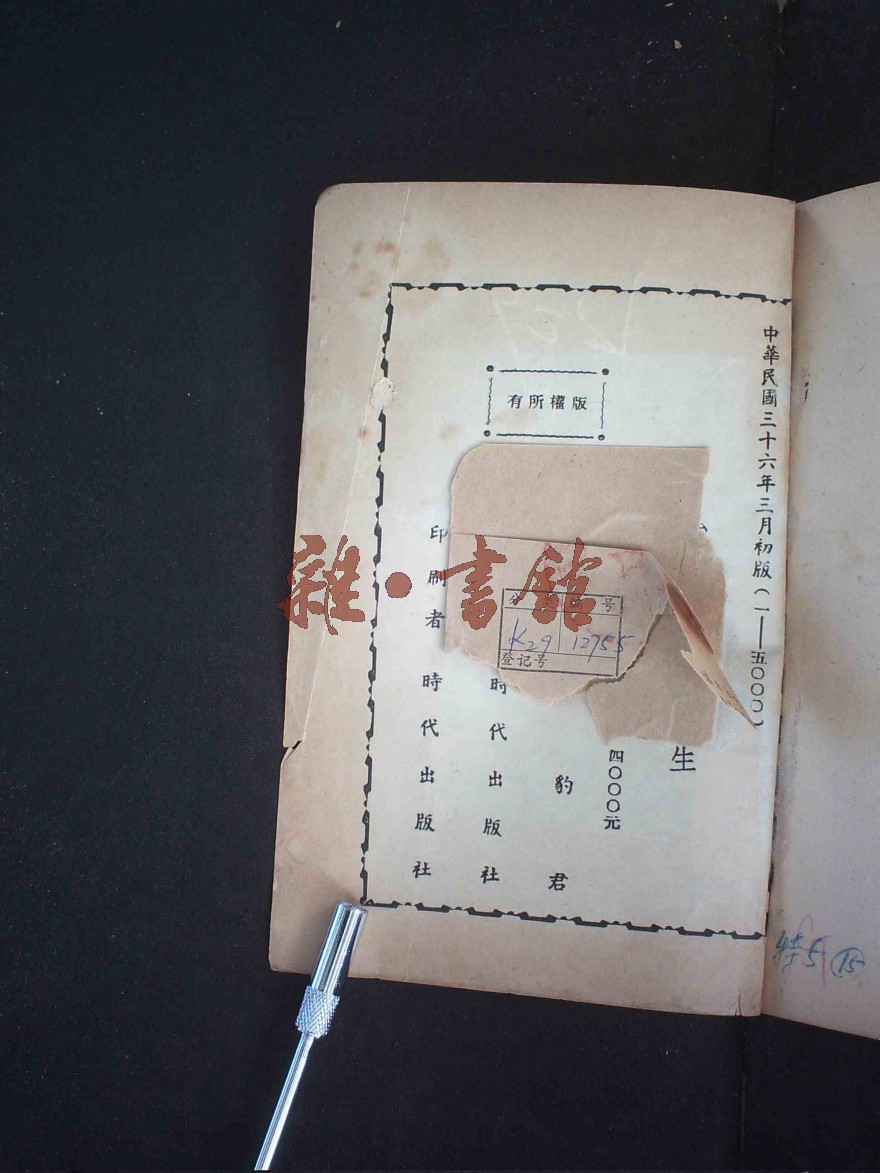 中華民國三十六年三月初版(一——五〇〇〇)
生
四〇〇〇元
豹君
時代出版社
印刷者 時代出版社
版權所有
分类 号
K29 12755
登记号
特5 15
雜·書館